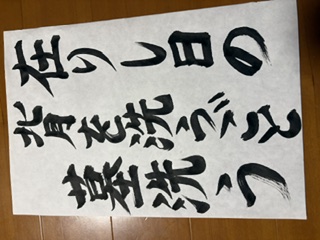 在りし日の
背を洗うごと
墓洗う